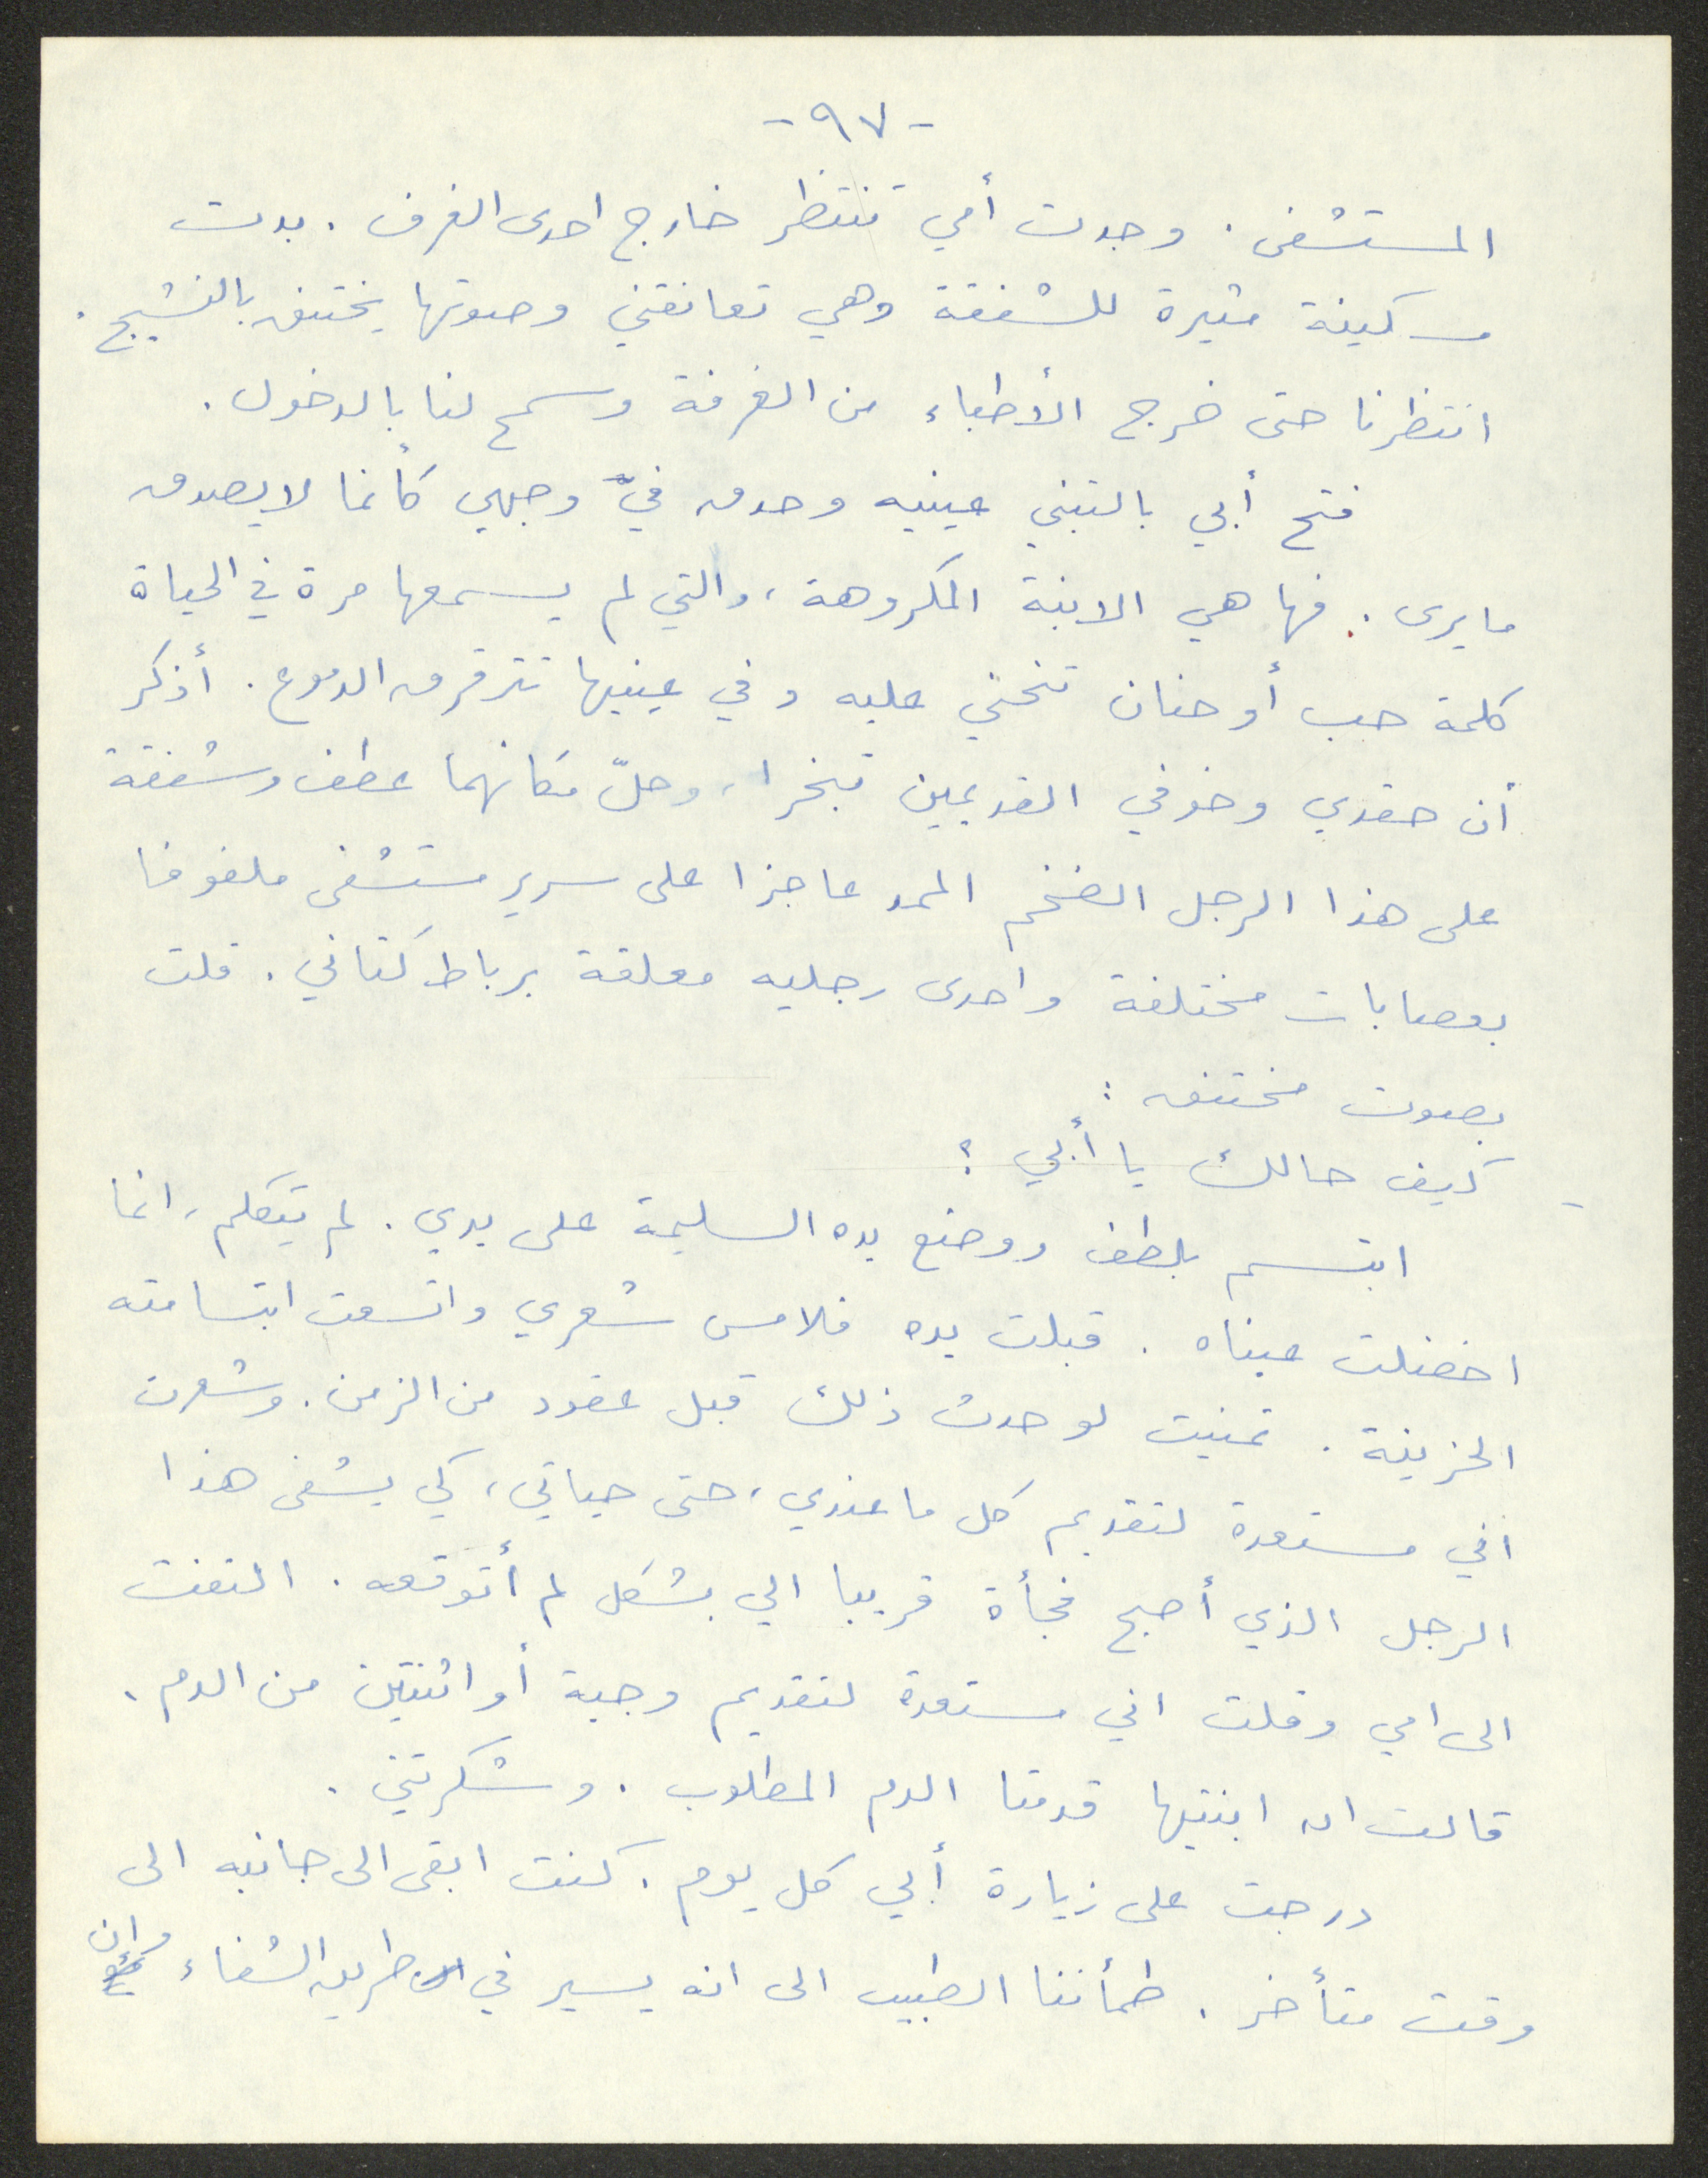 - ٩٧ -
المستشفى. وجدت أمي تنتظر خارج احدى الغرف. بدت
مسكينة مثيرة للشفقة وهي تعانقني وصوتها يختنق بالنشيج.
انتظرنا حتى خرج الأطباء من الغرفة وسمح لنا بالدخول.
فتح أبي بالتبني عينيه وحدق فيّ وجهي كأنما لا يصدق
ما يرى. فها هي الابنة المكروهة، والتي لم يسمعها مرة في الحياة
كلمة حب أو حنان تنحني عليه وفي عينيها تترقرق الدموع. أذكر
أن حقدي وخوفي القديمين تبخرا، وحلّ مكانهما عطف وشفقة
على هذا الرجل الضخم الممد عاجزا على سرير مستشفى ملفوفا
بعصابات مختلفة واحدى رجليه معلقة برباط كتاني. قلت
بصوت مختنق:
- كيف حالك يا أبي؟
ابتسم بلطف ووضع يده السليمة على يدي. لم يتكلم، انما
اخضلت عيناه. قبلت يده فلامس شعري واتسعت ابتسامته
الحزينة. تمنيت لو حدث ذلك قبل عقود من الزمن. وشعرت
أني مستعدة لتقديم كل ما عندي، حتى حياتي، كي يشفى هذا
الرجل الذي أصبح فجأة قريبا الي بشكل لم أتوقعه. التفت
الى امي وقلت اني مستعدة لتقديم وجبة أو اثنتين من الدم.
قالت ان ابنتيها قدمتا الدم المطلوب. وشكرتني.
درجت على زيارة أبي كل يوم. كنت ابقى الى جانبه الى
وقت متأخر. طمأننا الطبيب الى انه يسير في طريق الشفاء وان